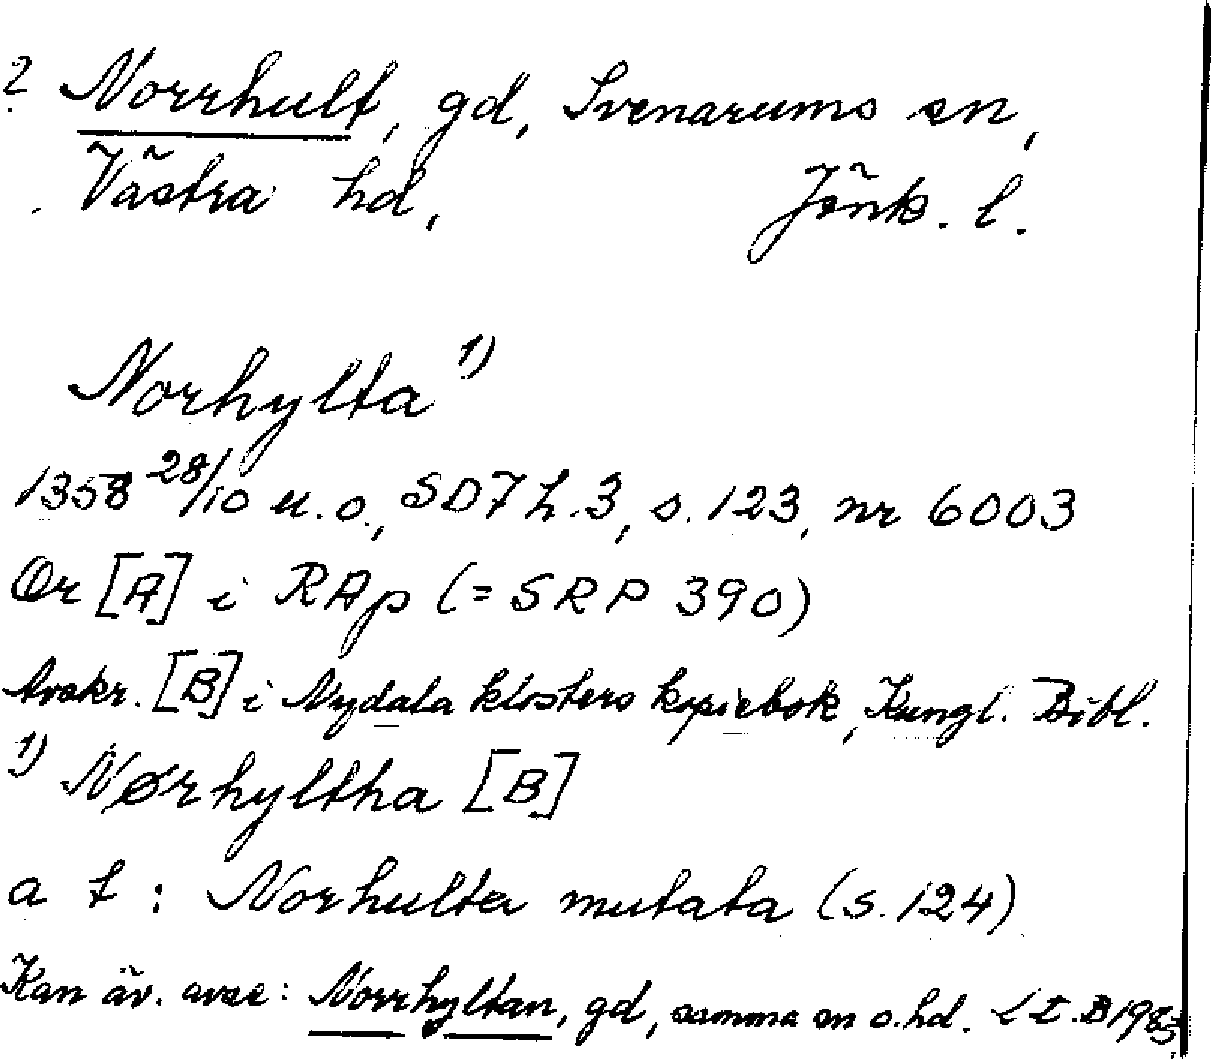 ? Norrhult, gd, Svenarums sn,
Västra hd, Jönk. l.
Norhylta 1)
1358 28/10 u.o., SD7 h.3, s.123, nr 6003
Or [A] i RAp (= SRP 390)
Avskr. [B] i Nydala klosters kopiebok, Kungl. Bibl.
1) Nørhyltha [B]
a t : Norhulta mutata (s.124)
Kan äv. avse: Norrhyltan, gd, samma sn o. hd. Lt. B 1983